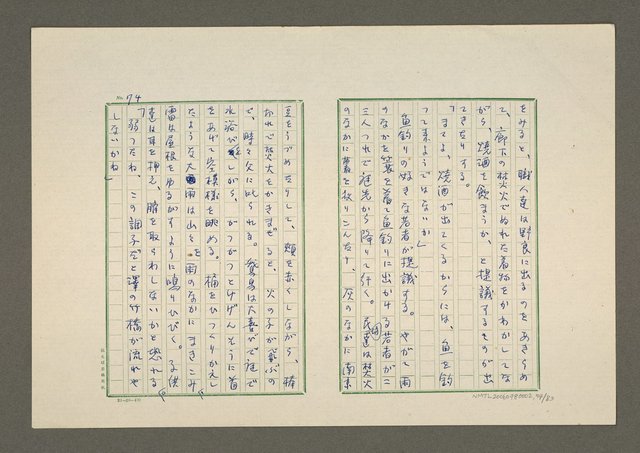 をみると、職人達は野良に出るのをあきらめ
て、廊下の焚火でぬれた着物をかわかしてな
がら、焼酒を飲まうか、と提議するものが出
てきたりする。
「まてよ、焼酒が出てくるからには、魚を釣
って来ようではないか」
魚釣りの好きな若者が提議する。やがて雨
のなかを蓑を着て魚釣りに出かける若者が二
三人つれて庭先から降りて行く。子達は焚火
のなかに藷を放りこんだり、灰のなかに南京
No. 74
豆をうづめたりして、頬を赤くしながら、棒
きれで焚火をかきまぜると、火の子が飛ぶの
で、時々父に叱られる。鵞鳥は大喜びで庭で
水浴びしながら、がつがつとけげんそうに首
をあげて空模様を眺める。桶をひっくりかえし
たような大雨は山を雨のなかにまきこみ、
雷は屋根をゆるがすように鳴りひびく。子供
達は耳を押え、臍を取られしないかと恐れる。
「弱ったね。この調子だと澤の竹橋が流れや
しないかね」
NMTL20060980002,74/83